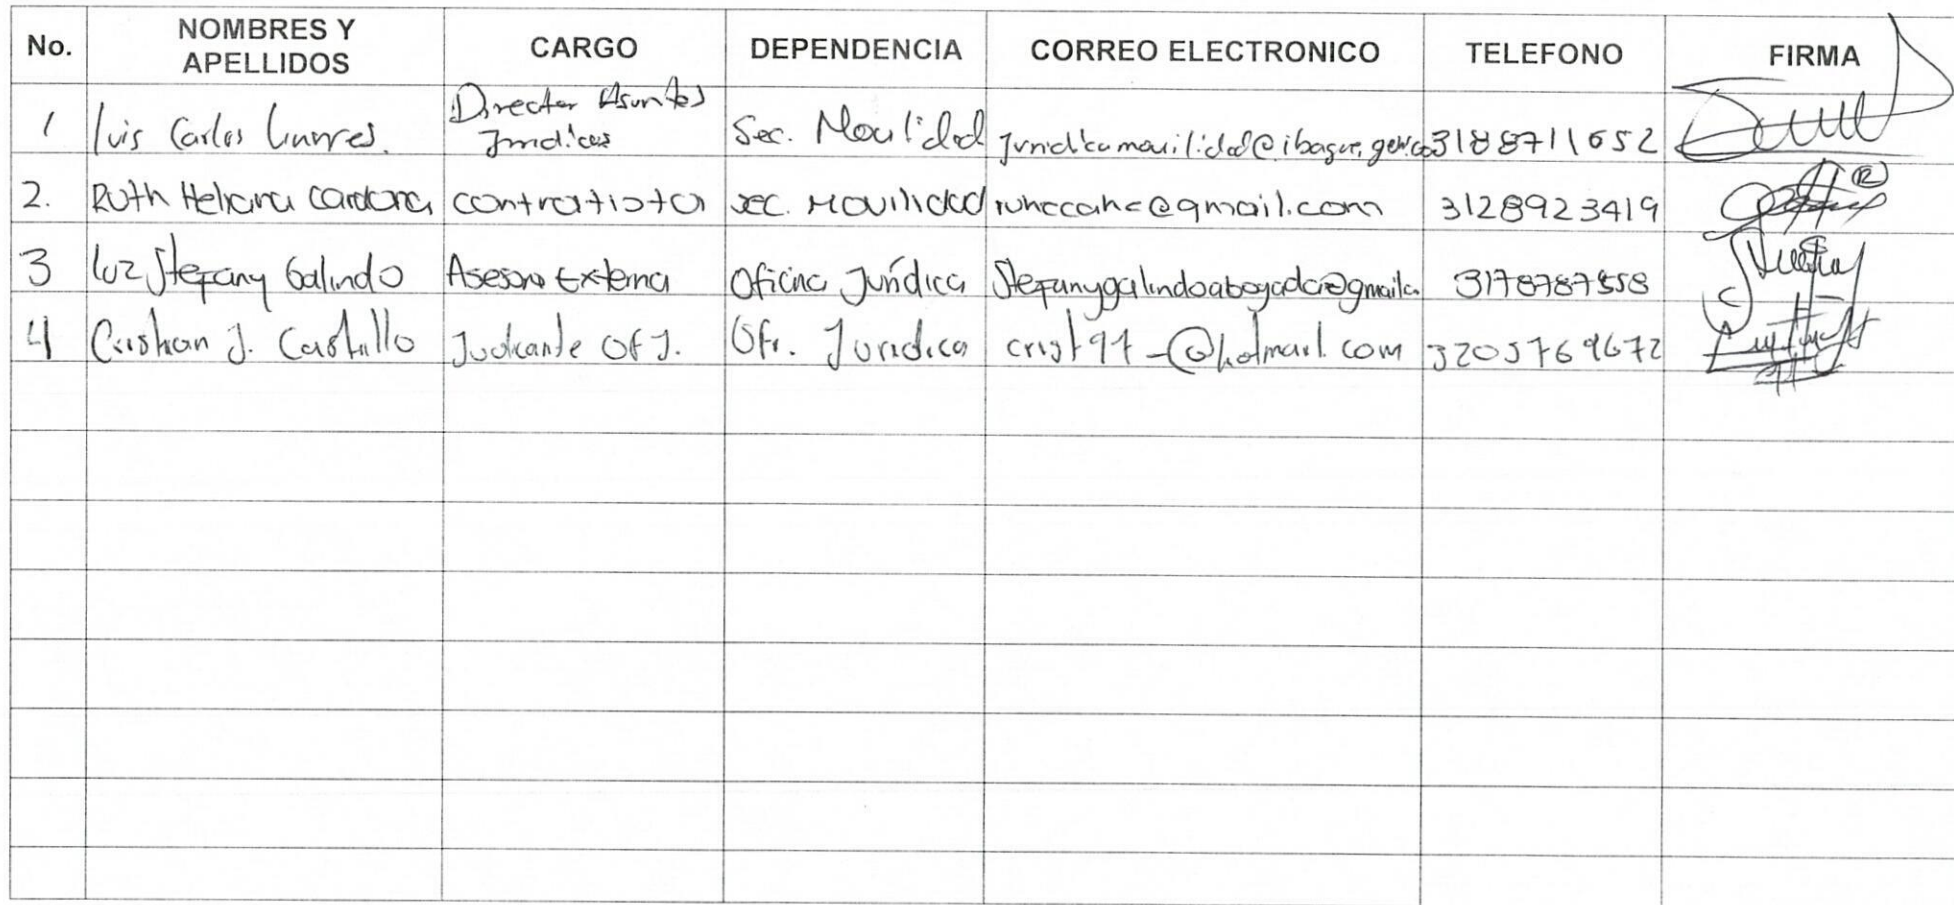 No. NOMBRES Y APELLIDOS CARGO DEPENDENCIA CORREO ELECTRONICO TELEFONO FIRMA
1 Luis Carlos Linares. Director Asuntos Juridicos Sec. Movilidad juridicamovilidad@ibague.gov.co 3188711652
2. Ruth Heliana Cardona contratista sec. Movilidad 3128923419
3 Luz Stefany Galindo Asesora Externa Oficina Jurídica Stefanygalindoabogada@gmail.c 3178787858
4 Cristian J. Castillo Judicante Of J. Ofi. Juridica crist97_@hotmail.com 3205769672